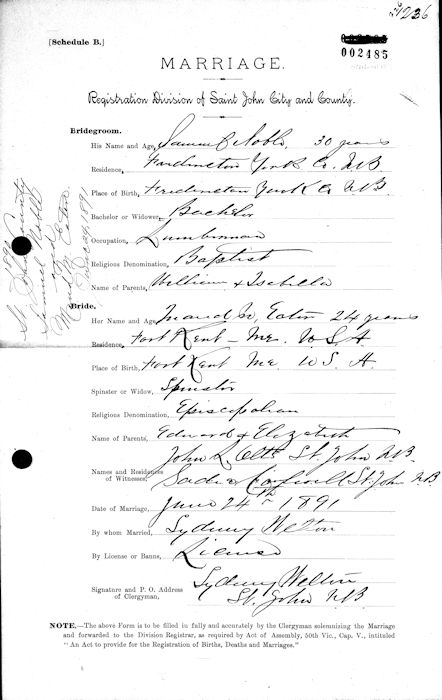 [Schedule B.]
002485
MARRIAGE.
Registration Division of Saint John City and County.
Bridegroom.
His Name and Age, Samuel C Noble 30 years
Residence, York Co. NB
Place of Birth, York Co NB.
Bachelor or Widower, Bachelor
Occupation, Lumberman
Religious Denomination, Baptist
Name of Parents, William & Isabella
Bride.
Her Name and Age, Maud M, Eaton 24 years
Residence, Fort Kent – Me. U.S.A
Place of Birth, Fort Kent Me U S. A.
Spinster or Widow, Spinster
Religious Denomination, Episcopalian
Name of Parents, Edward & Elizabeth
Names and Residences of Witnesses,
John St. John NB.
Sadie St. John NB
Date of Marriage, June 24th 1891
By whom: Married, Sydney Welton
By License or Banns, License
Signature and P. O. Address of Clergyman,
Sydney Welton
St. John NB
NOTE.—The above Form is to be filled in fully and accurately by the Clergyman solemnizing the Marriage
and forwarded to the Division Registrar, as required by Act of Assembly, 50th Vic., Cap. V., intituled
"An Act to provide for the Registration of Births, Deaths and Marriages."